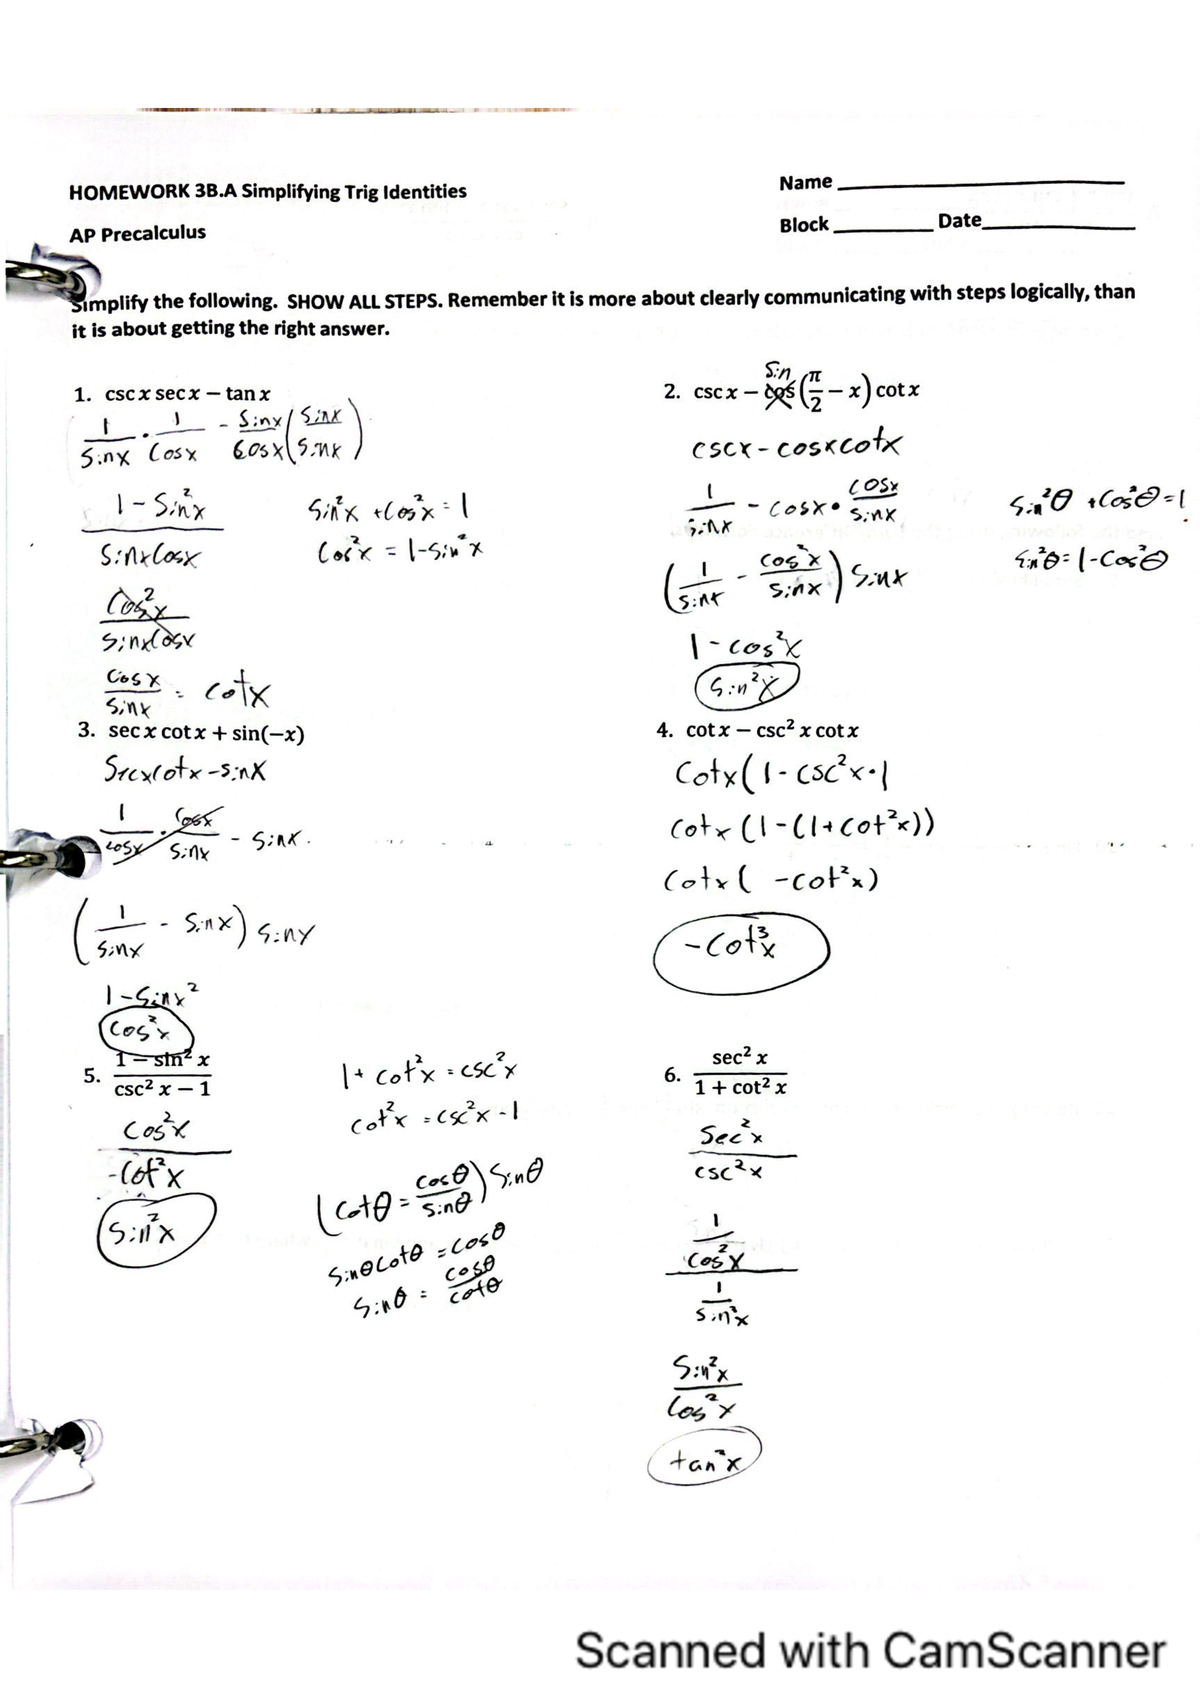 HOMEWORK 3B.A Simplifying Trig Identities
Name
AP Precalculus
Block Date
Simplify the following. SHOW ALL STEPS. Remember it is more about clearly communicating with steps logically, than
it is about getting the right answer.
1. csc x sec x − tan x
1/sinx · 1/cosx - sinx/cosx (sinx/sinx)
1 - sin²x / sinxcosx
sin²x + cos²x = 1
cos²x = 1-sin²x
cos²x / sinxcosx
cosx/sinx = cotx
2. csc x − cos(π/2 − x) cot x
sin
cscx - cosxcotx
1/sinx - cosx · cosx/sinx
sin²θ + cos²θ = 1
sin²θ = 1-cos²θ
(1/sinx - cos²x/sinx) sinx
1-cos²x
sin²x
3. sec x cot x + sin(−x)
secxcotx - sinx
1/cosx · cosx/sinx - sinx.
(1/sinx - sinx) sinx
1-sinx²
cos²x
4. cot x − csc² x cot x
cotx(1-csc²x·1
cotx (1-(1+cot²x))
cotx( -cot²x)
-cot³x
5. 1 − sin² x / csc² x − 1
cos²x / -cot²x
sin²x
1+ cot²x = csc²x
cot²x = csc²x -1
(cotθ = cosθ/sinθ) sinθ
sinθcotθ = cosθ
sinθ = cosθ/cotθ
6. sec² x / 1 + cot² x
sec²x / csc²x
1/cos²x / 1/sin²x
sin²x / cos²x
tan²x
Scanned with CamScanner